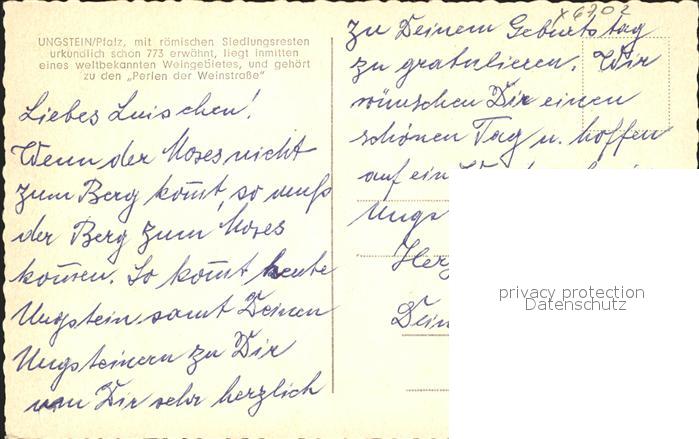 UNGSTEIN/Pfalz, mit römischen Siedlungsresten
urkundlich schon 773 erwähnt, liegt inmitten
eines weltbekannten Weingebietes, und gehört
zu den „Perlen der Weinstraße"
Liebes Luischen!
Wenn der Moses nicht
zum Berg kom̅t, so muß
der Berg zum Moses
kom̅en. So kom̅t heute
Ungstein samt Deinen
Ungsteinern zu Dir
um Dir sehr herzlich
x6702
zu Deinem Geburtstag
zu gratulieren. Wir
wünschen Dir einen
schönen Tag u. hoffen
auf ein
Ungs
Herz
Dein
privacy protection
Datenschutz